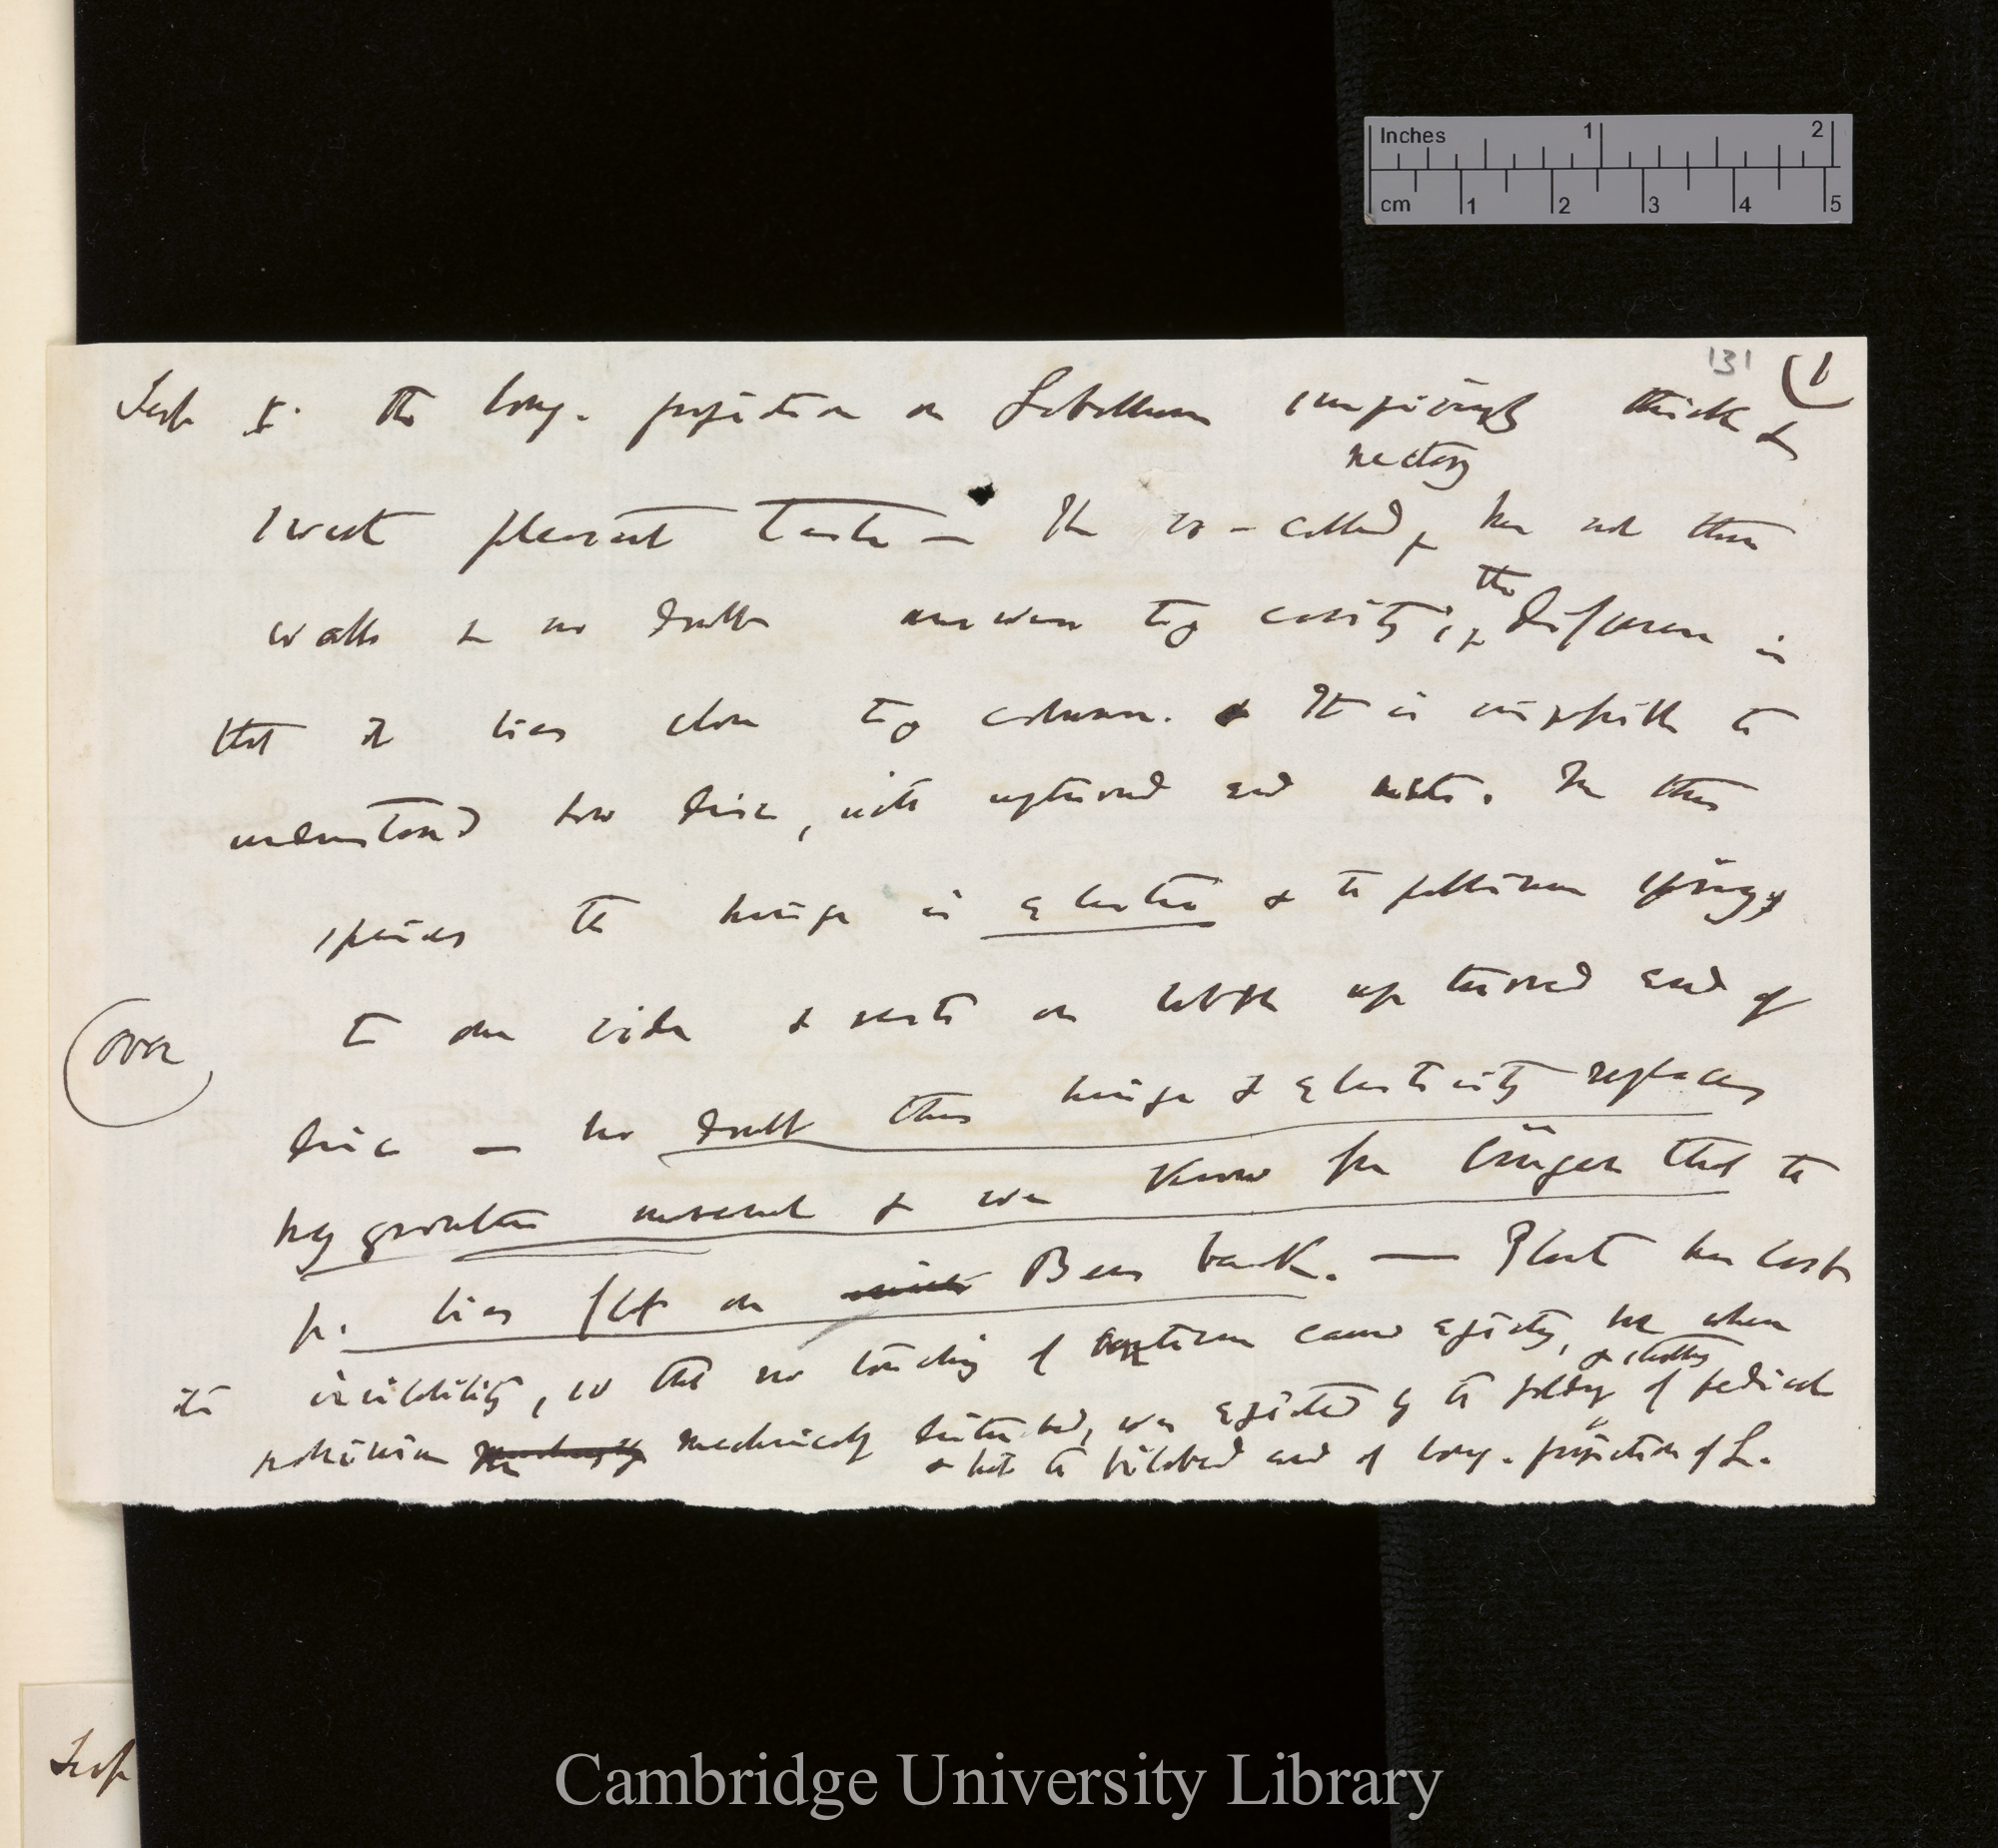 131 (1
Inches 1 2
cm 1 2 3 4 5
Sept 5. The long. projection on Labellum surprisingly thick &
nectary
sweet pleasant taste — The so-called ^ has not thin
walls & no doubt answers to cavity; ^ the difference is
that it lies close to column. & It is impossible to
understand how disc, with upturned end acts. In this
species the hinge is elastic & the pollinium springs
to one side & rests on top of upturned end of
(over)
disc — no doubt this hinge & elasticity replaces
hygrometric movement & we know for longer that the
p. lies flat on Bees back. — Plant has lost
its irritability, so that no touching of causes ejecting, but when
& 
pollinium mechanically disturbed, was ejected by the of pedicel
& hit the bilobed end of long. projection of L.
Sept
Cambridge University Library